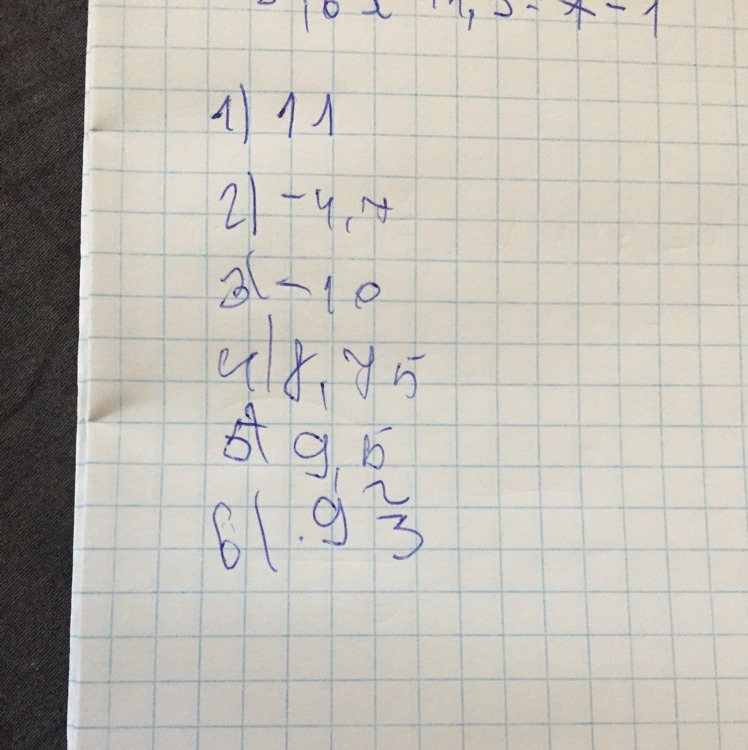 1) 11
2) -4,7
3) -10
4) 8,75
5) 9,5
6) 9 2/3